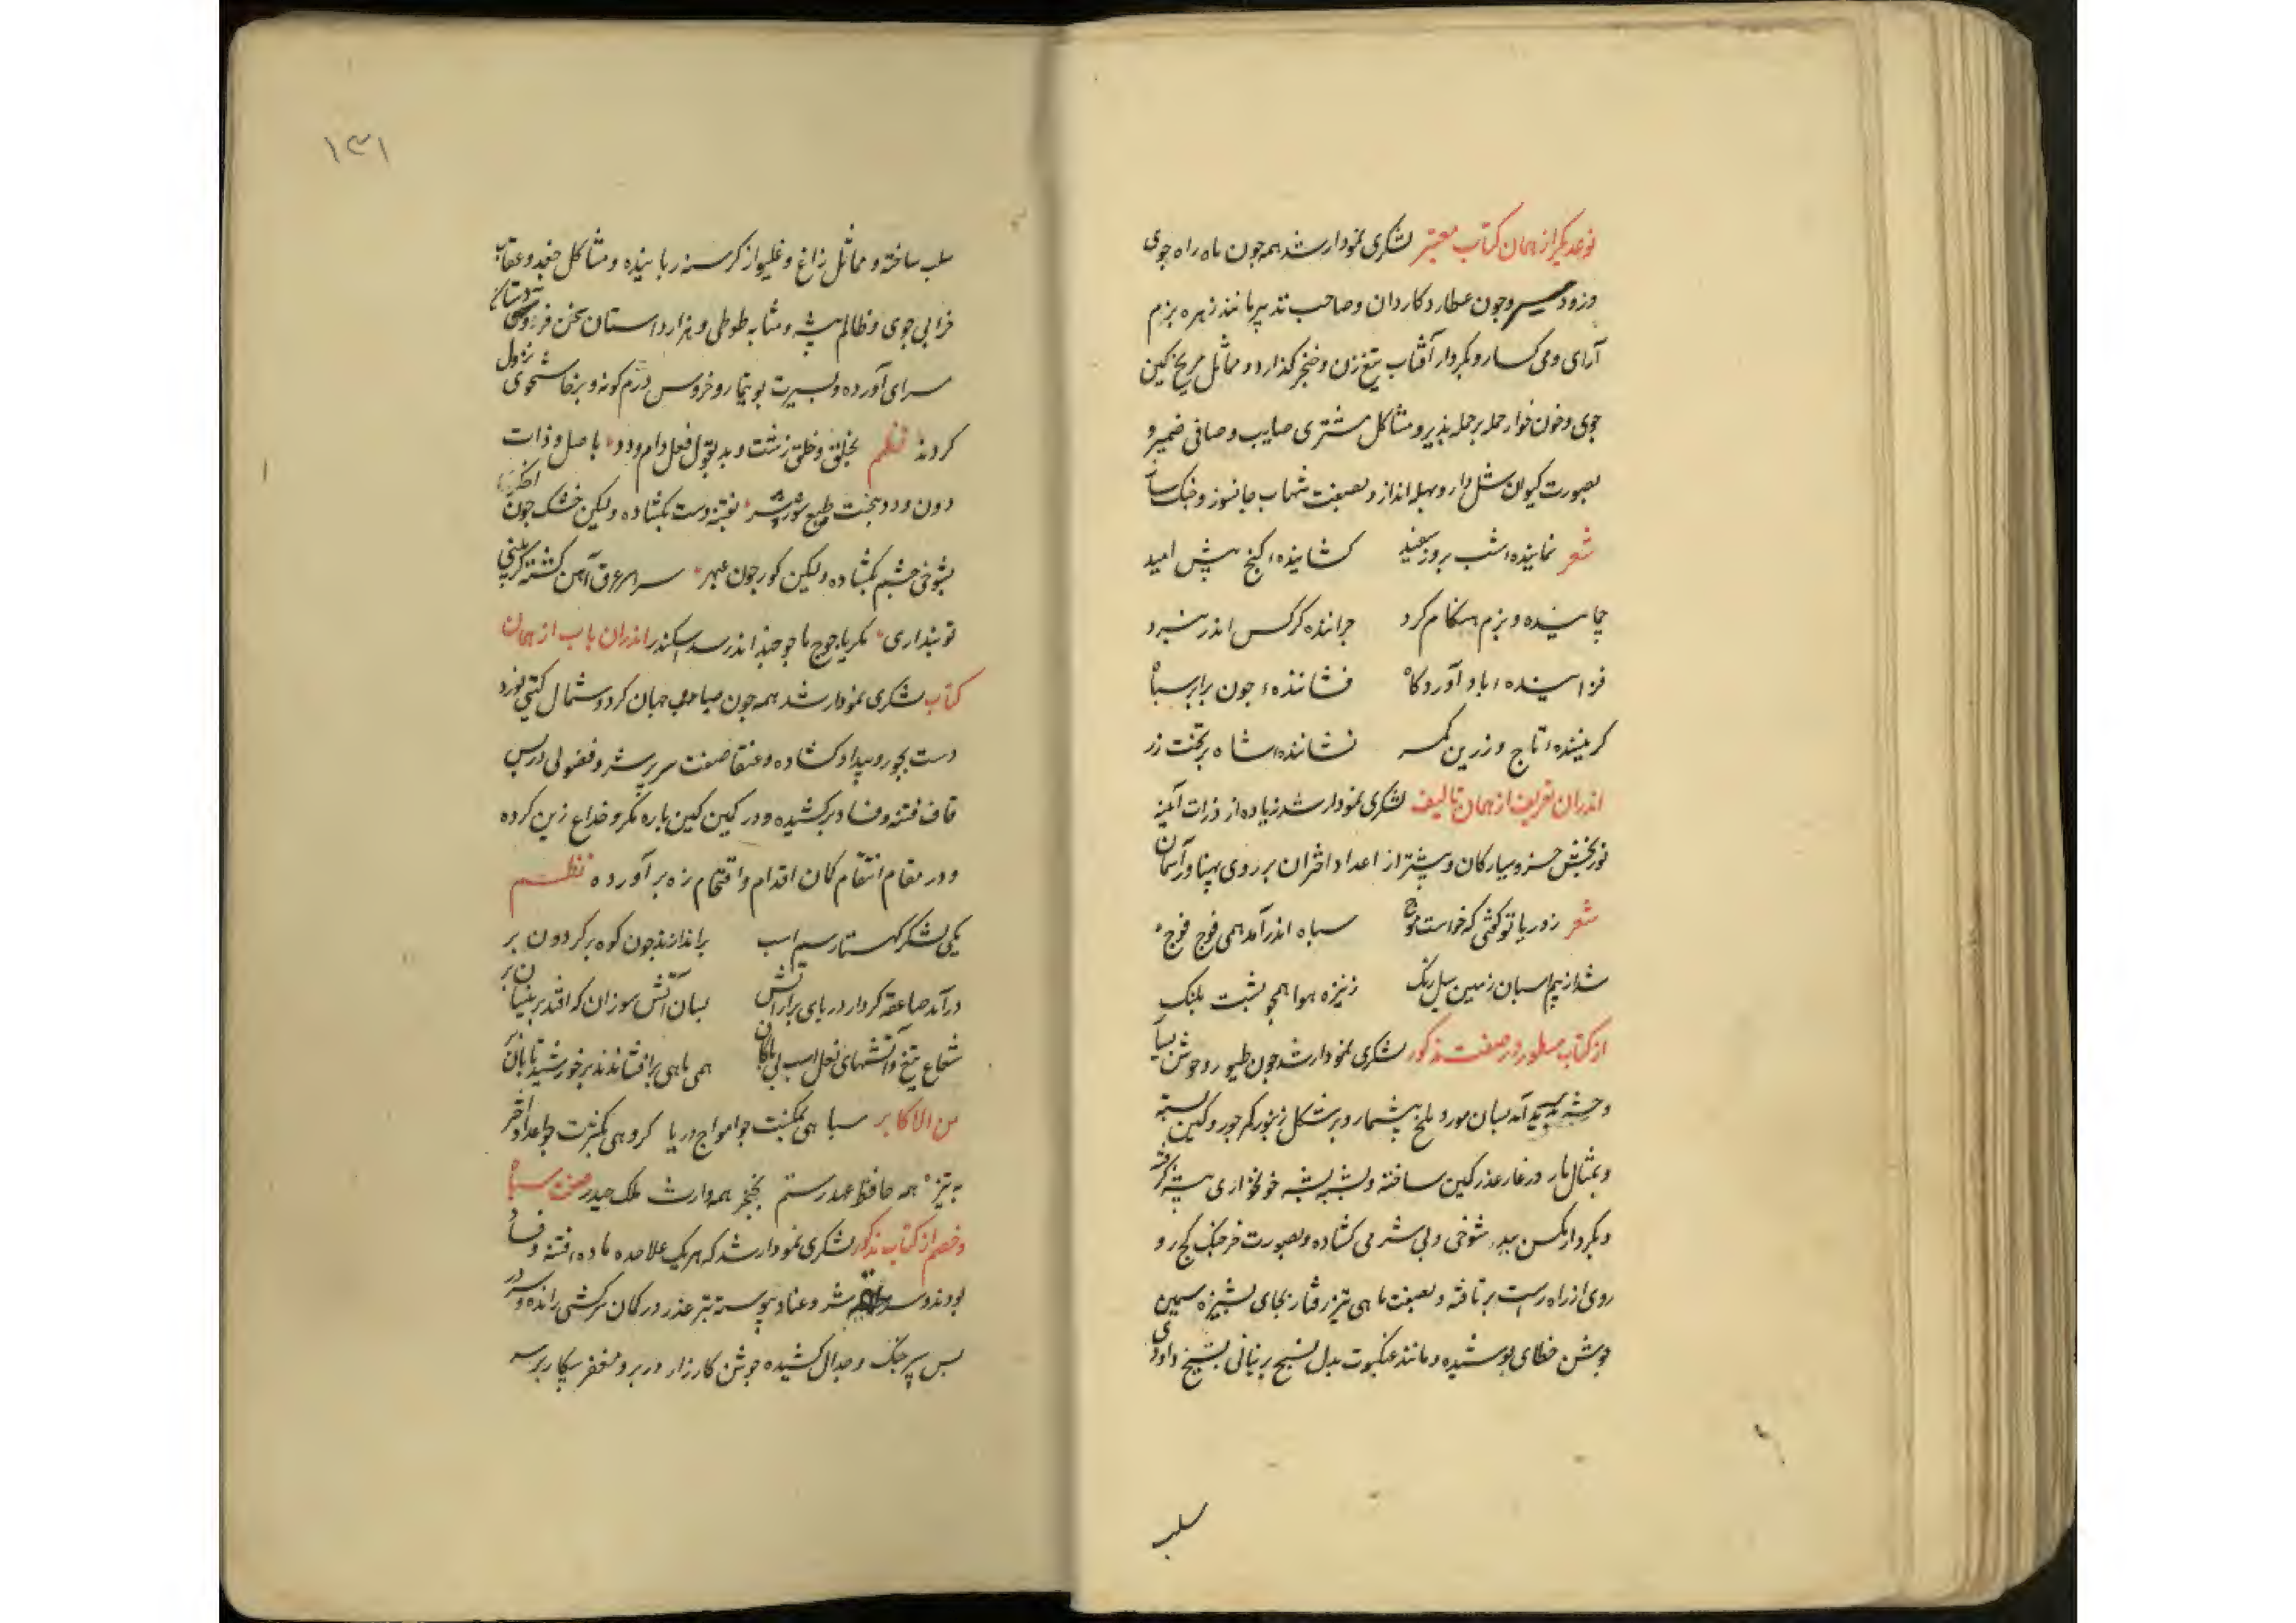 نوعدیکر از همان کتاب معتبر لشکری نمودار شد همه جون ماه راه جوی
وزود سیر وجون عطارد کاردان وصاحب تدبیر مانند زهره بزم
آرای ومی کسار وبکردار آفتاب تیغ زن وخنجر کذار و مماثل مریخ کین
جوی وخون خوار حمله بر حمله پذیر ومشاکل مشتری صایب وصافی ضمیر و
بصورت کیوان مشل دار و مهله انداز وبصفت شهاب جانسوز و
شعر نماینده شب بروز سفید کشاینده کنج پیش امید
جمانیده و بزم هنکام کرد جراننده کرکس اندر نبرد
فزاینده باد آوردکاه فشاننده جون برابر سپاه
کریننده تاج وزرین کمر نشاننده شاه بر تخت زر
اندران تعریف از همان تالیف لشکری نمودار شد زیاده از ذرات آینه
نوربخش خسرو سیارکان وبیشتر از اعداد اختران بر روی پهناور آسمان
شعر ز دریا تو کفتی که خواست موج سپاه اندر آمد همی فوج فوج
شد از سم اسبان زمین سیل رنک ز نیزه هوا همجو پشت پلنک
از کتاب مسطور در صفت مذکور لشکری نمودار شد جون طیور و وحوش
آمد بسان مور و ملخ بیشمار وبر شکل زنبور کمر جور وکین بسته
وبمثال مار در غار عذر کمین ساخته ولشیر بیشه خونخواری
وبکردار مکس بید شوخی وبی شرمی کشاده وبصورت خرجنک کج رو
روی از راه راست بر تافته وبصفت ماهی تیز رفتار بجای پشیزه سیمین
جوشن خطای پوشیده ومانند عنکبوت بدل نسج پرنیانی بنسیج داودی
سلب
۱۳۱
سلب ساخته و مماثل زاغ و غلیواز کرسنه رباینده ومشاکل جغد وعقاب
خرابی جوی وظالم پیشه ومشابه طوطی وهزار داستان سخن فروشی و دستان
سرای آورده وبسیرت بوتیمار وخروس دژم کونه وپرخاشجوی نزول
کردند نظم بخلق وخلق زشت وبد بقول فعل دام ودد باصل وذات
دون ودد بخت طبع شور وشر نفتنه دست بکشاده ولیکن خشک جون
بشوخی چشم بکشاده ولیکن کور جون عبهر سراسر غرق آهن کشته
تو پنداری مکر یاجوج ماجوجند اندر سد اسکندر اندران باب از همان
کتاب لشکری نمودار شد همه جون صبا جهان کرد وشمال کیتی نورد
دست بجور وبیداد کشاده وعنقا صفت سر بر شر وفضولی از پس
قاف فتنه وفساد برکشیده ودر کمین کین باره مکر وخداع زین کرده
ودر مقام انتقام کمان اقدام واقتحام زه بر آورده نظم
یکی لشکر کهستار سیم اسب براندازند جون کوه بر کردون بر
درآمد صاعقه کردار دریای پر از آتش بسان آتش سوزان که افتد بر نیستان بر
شعاع تیغ وآتشهای نعل اسب همی ماهی برافشاندند بر خورشید تابان بر
من الاکابر سپاهی بمکنت جو امواج دریا کروهی بکثرت جو اعداد اختر
به تیزه همه حافظ عهد رستم بخنجر همه وارث ملک حیدر صفت سپاه
وخصم از کتاب مذکور لشکری نمودار شد که هر یک علاحده ماده فتنه وفساد
بودند شر وعناد پیوسته تیر عذر در کمان سرکشی رانده وسر در
پس سپر جنک وجدال کشیده جوشن کارزار در بر ومغفر پیکار بر سر